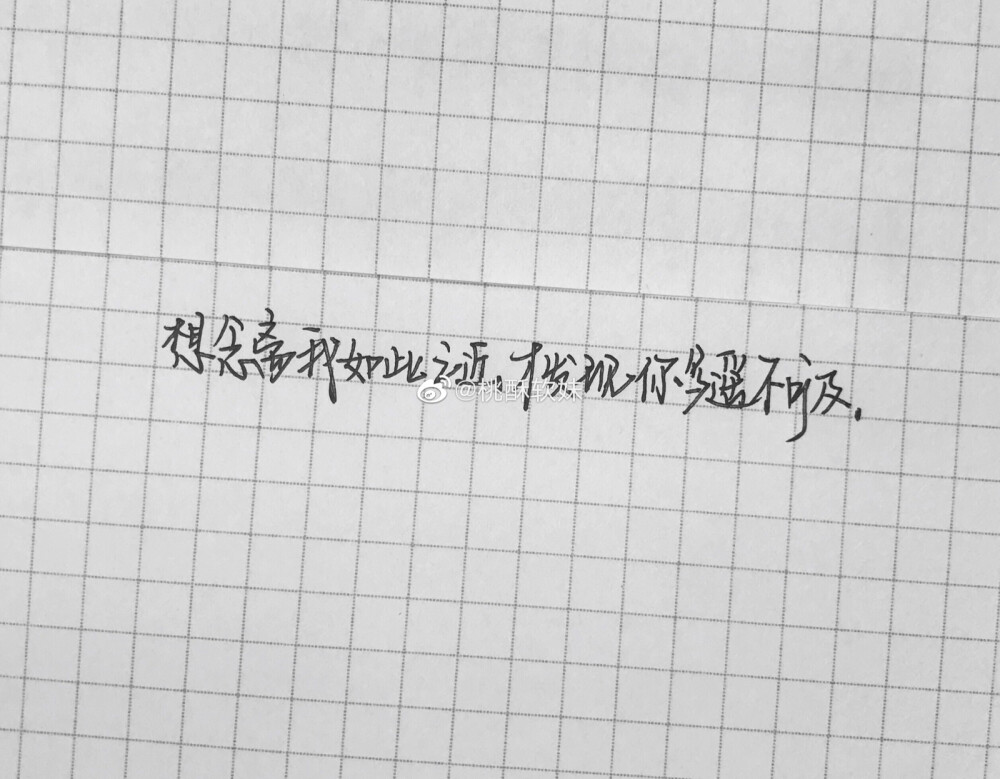 想念离我如此之近,才发现你多遥不可及.
@桃酥软妹